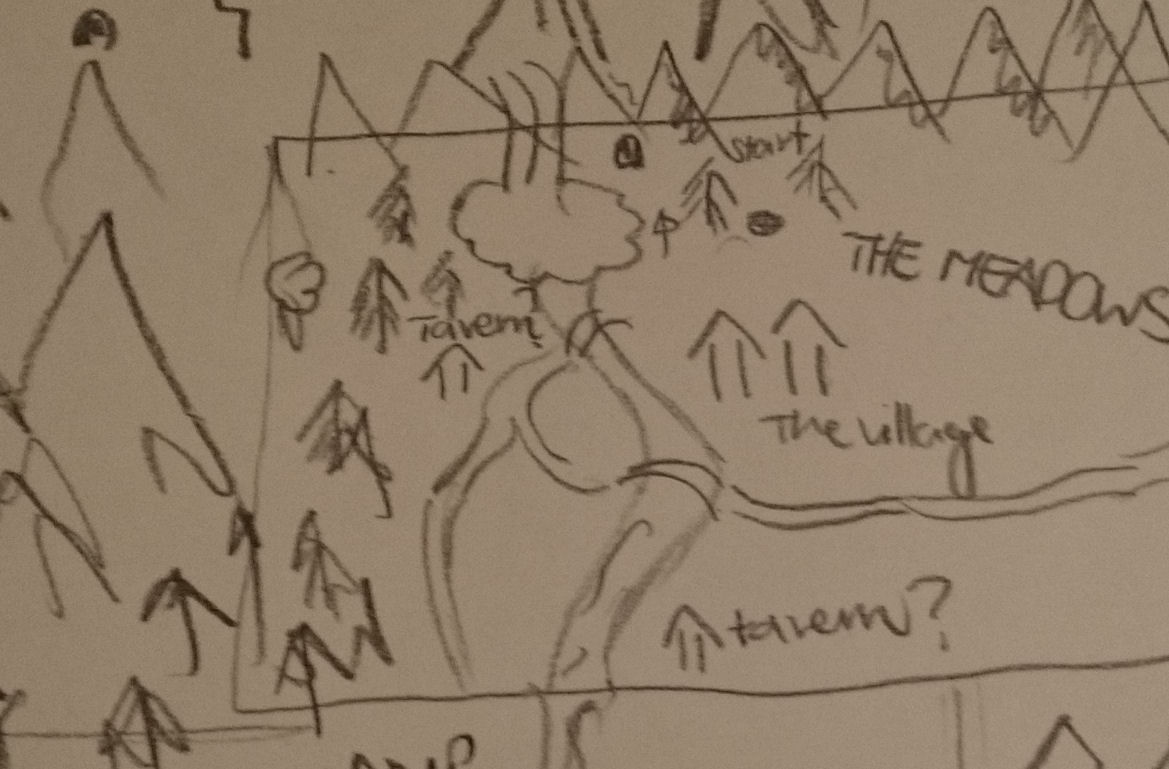 start
THE MEADOWS
Tavern?
The village
tavern?